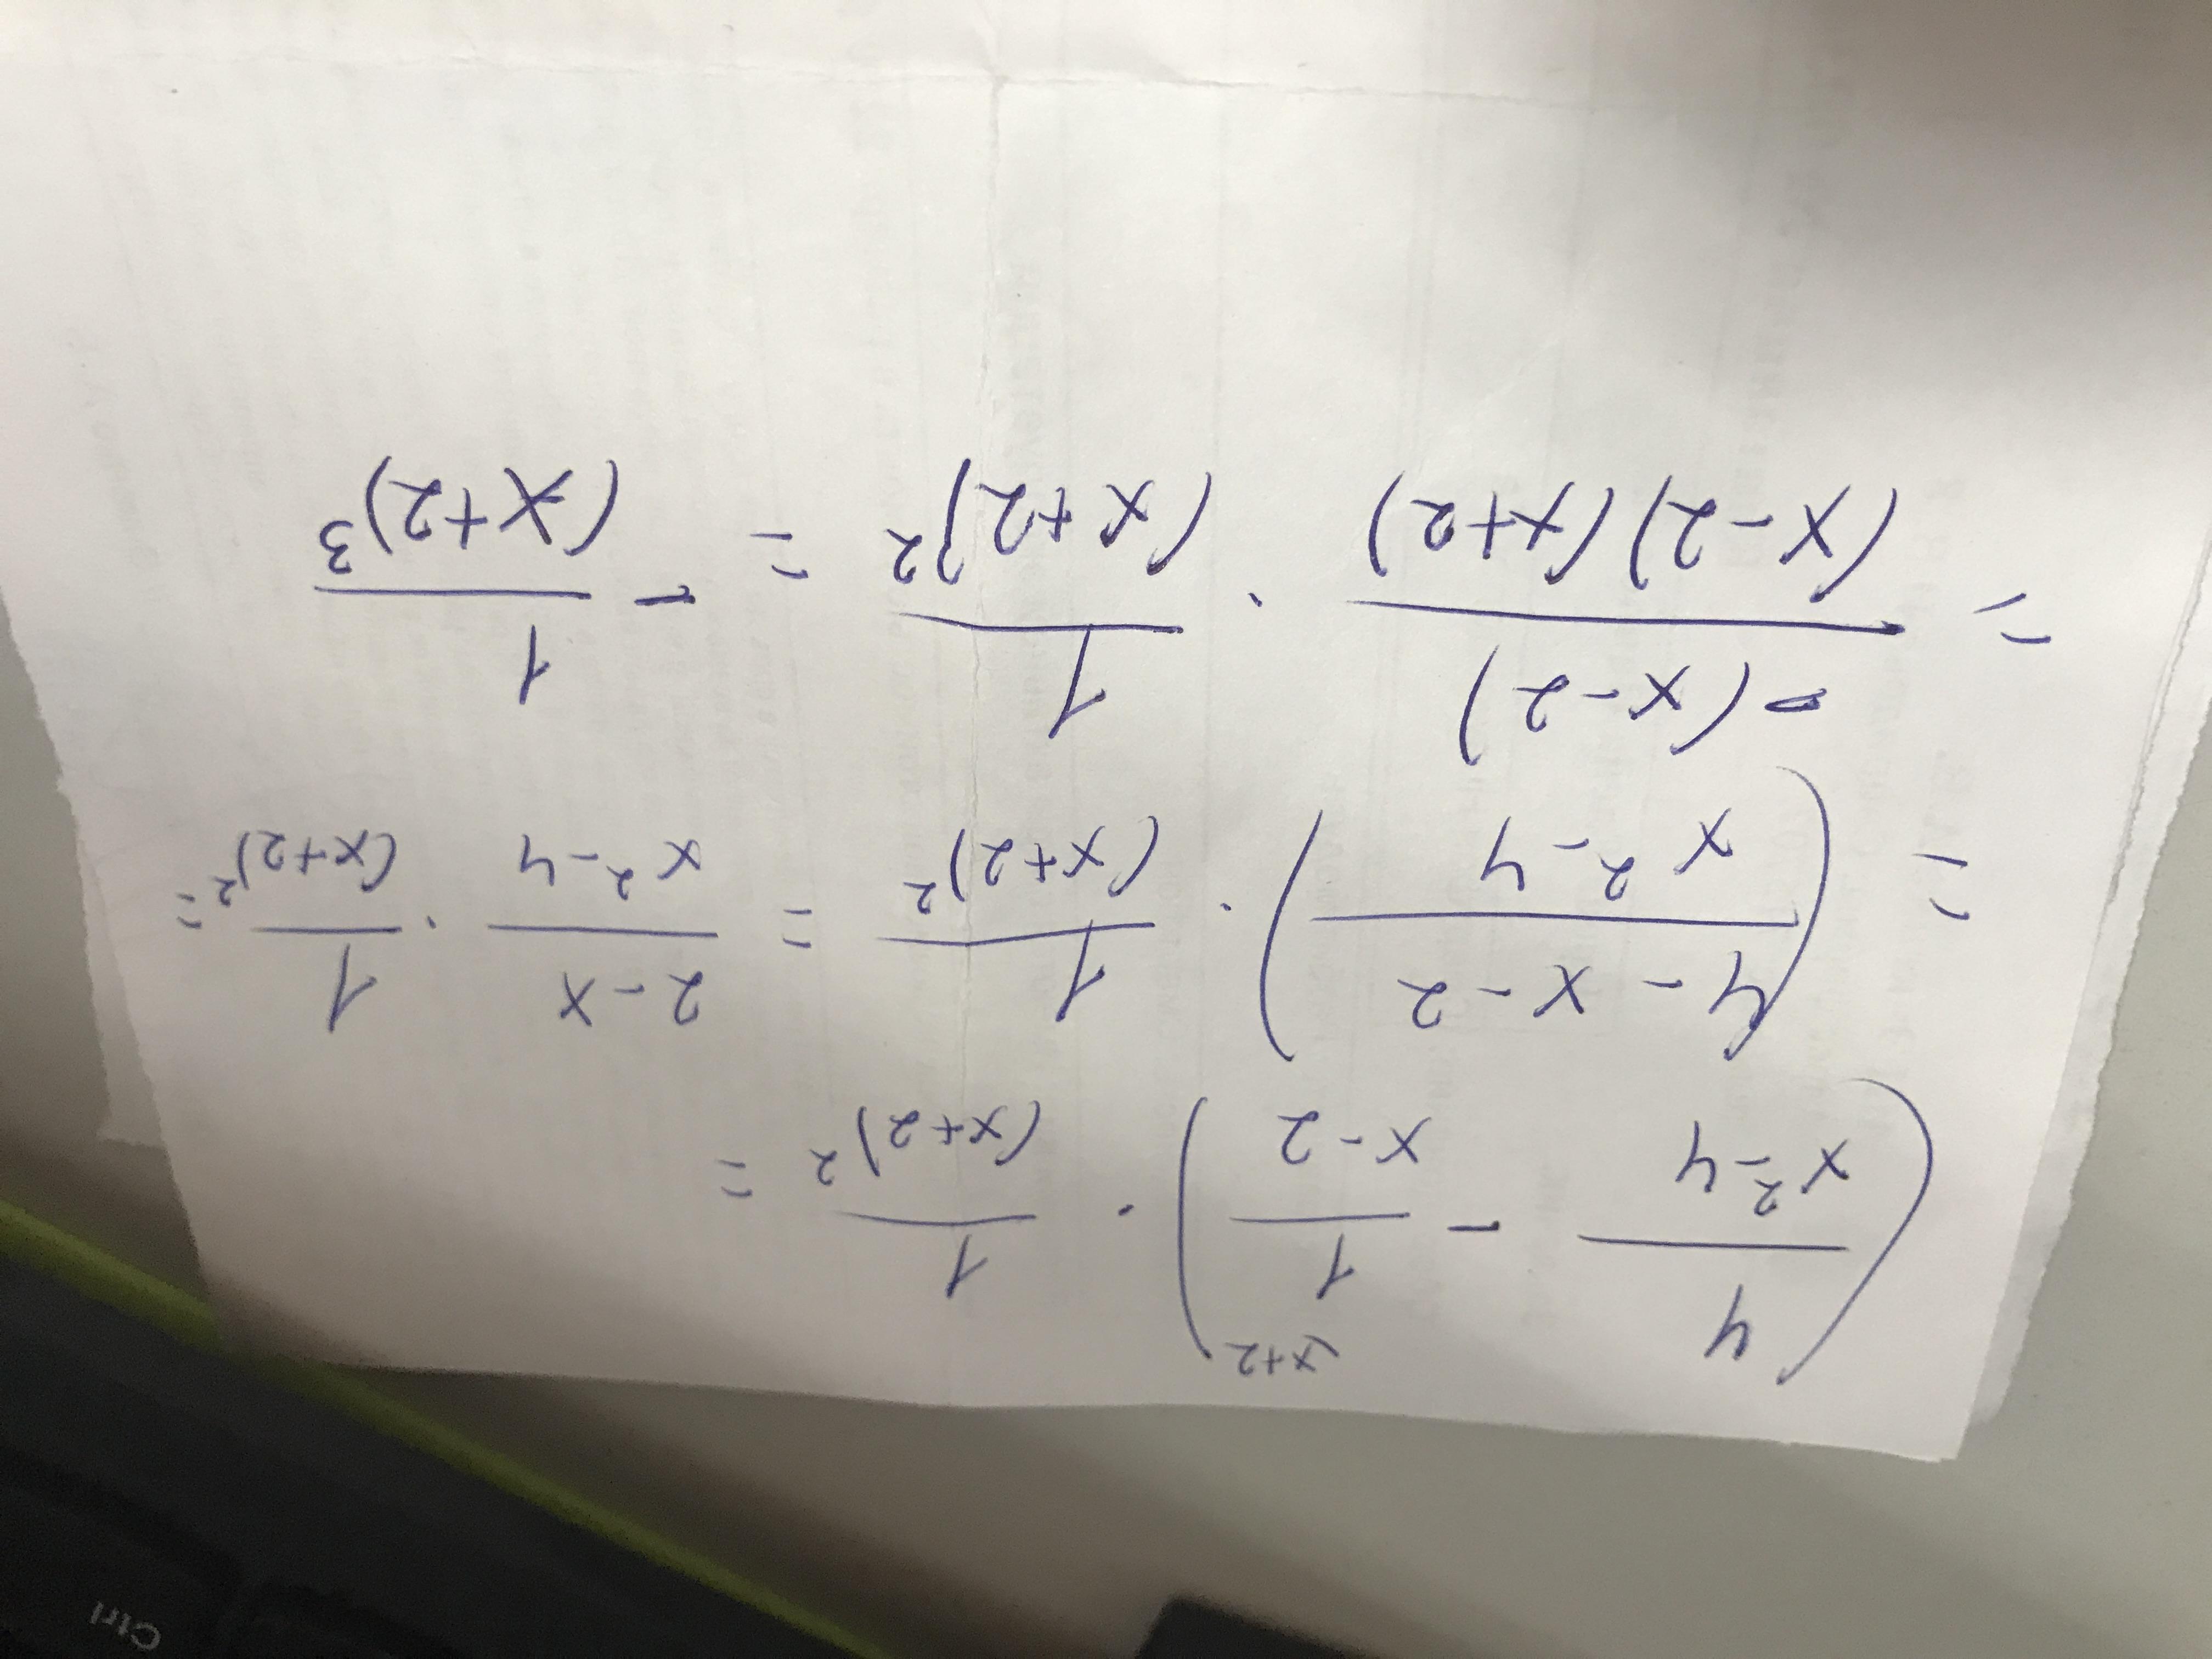 x+2
(4/(x²-4) - 1/(x-2)) · 1/(x+2)² =
= ((4-x-2)/(x²-4)) · 1/(x+2)² = (2-x)/(x²-4) · 1/(x+2)² =
= -(x-2)/((x-2)(x+2)) · 1/(x+2)² = - 1/(x+2)³
Ctrl